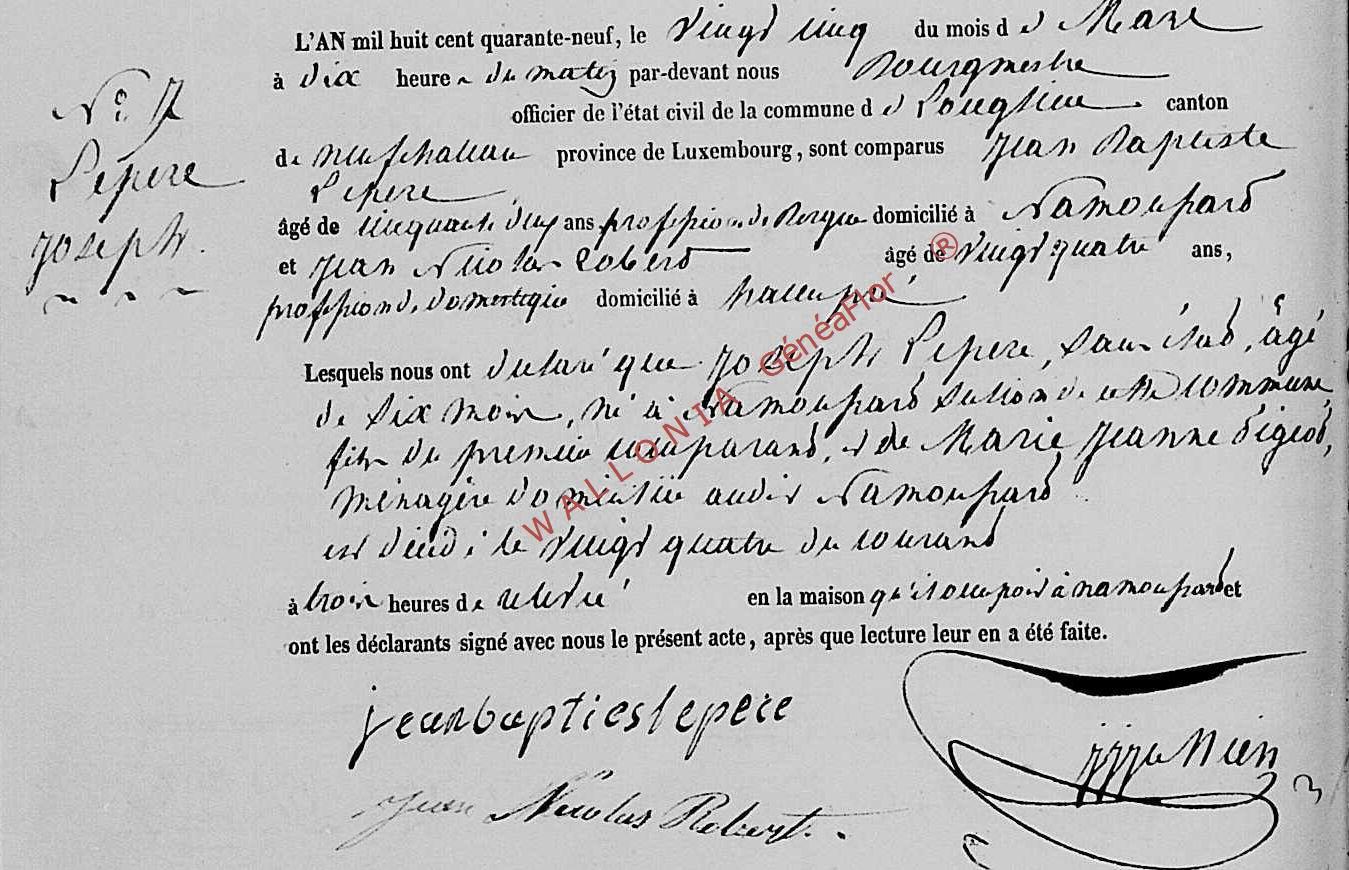 L'AN mil huit cent quarante-neuf, le vingt cinq du mois d e Mars
à dix heure s du matin par-devant nous Bourgmestre
officier de l'état civil de la commune d e Longlier canton
de neufchateau province de Luxembourg, sont comparus Jean Baptiste
Lepere
âgé de cinquante ans, profession de Berger domicilié à Namoupard
et Jean Nicolas Robert âgé de vingt quatre ans,
profession de domestique domicilié à
Lesquels nous ont déclaré que Joseph Lepere, sans état, âgé
de six mois, né à Namoupard section de cette commune,
fils du premier comparant, et de Marie Jeanne Pigeot,
ménagère domiciliée audit Namoupard
est décédé le vingt quatre du courant
à trois heures de relevée en la maison qu'il occupoit à namoupard et
ont les déclarants signé avec nous le présent acte, après que lecture leur en a été faite.
jeanbaptiestepere
Jean Nicolas Robert.
No. 7
Lepere
Joseph.
WALLONIA GénéaFlor ®